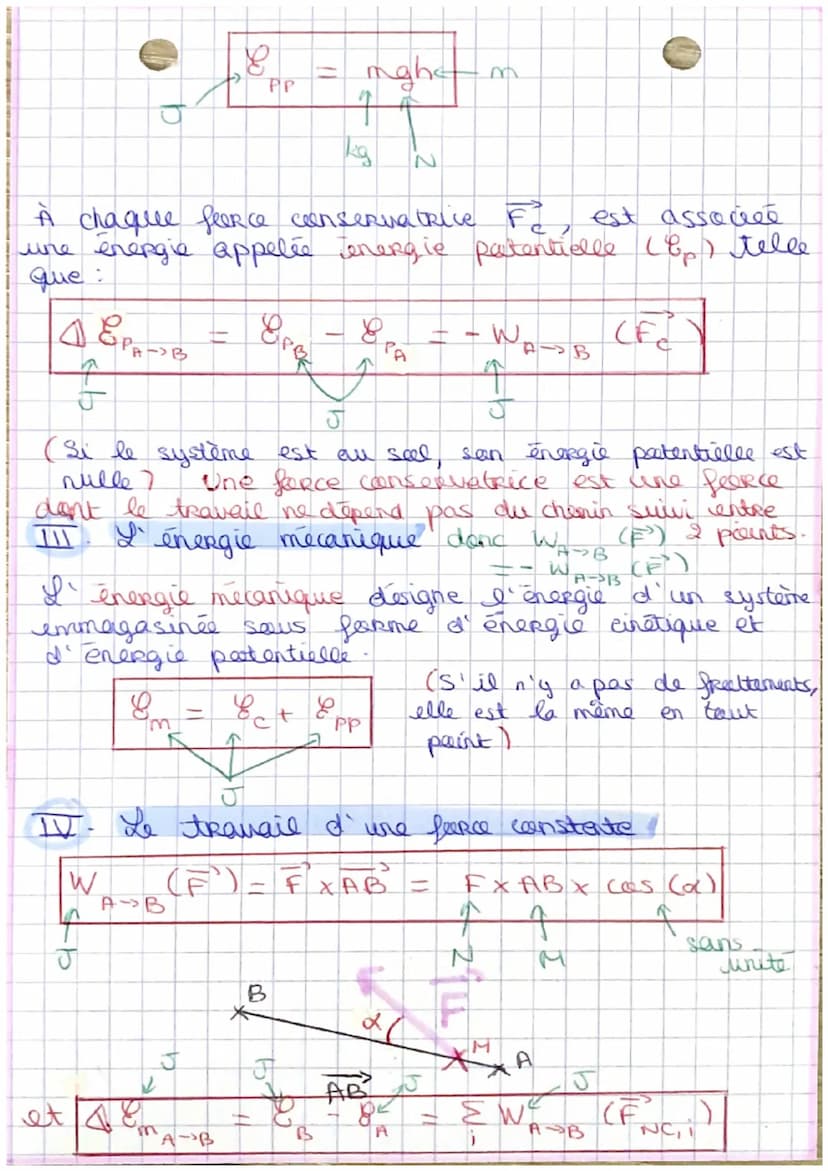 ℰpp = mgh ← m
J
kg N
À chaque force conservatrice F⃗c, est associée
une énergie appelée énergie potentielle (ℰp) telle
que :
Δℰp A→B = ℰpB - ℰpA = - W A→B (F⃗c)
J J J
(Si le système est au sol, son énergie potentielle est
nulle) Une force conservatrice est une force
dont le travail ne dépend pas du chemin suivi entre
III. L'énergie mécanique donc W A→B (F⃗) 2 points.
= - W A→B (F⃗)
L'énergie mécanique désigne l'énergie d'un système
emmagasinée sous forme d'énergie cinétique et
d'énergie potentielle.
(S'il n'y a pas de frottements,
ℰm = ℰc + ℰpp elle est la même en tout
point)
J
IV. Le travail d'une force constante
W A→B (F⃗) = F⃗ × AB⃗ = F × AB × cos (α)
J N M sans
unité
B F⃗
α
M A
J J AB⃗ J J
et Δℰm A→B = ℰB - ℰA = Σi W A→B (F⃗NC,i)